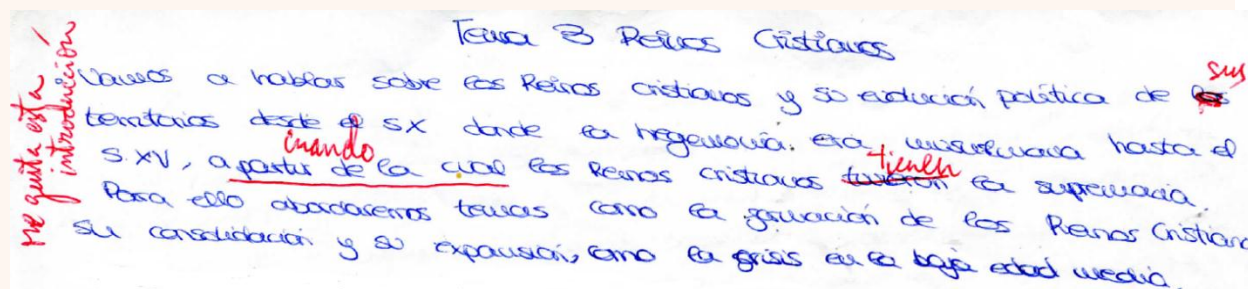 Tema 3 Reinos Cristianos
me gusta esta introducción
Vamos a hablar sobre los Reinos cristianos y su evolución política de los sus
territorios desde el s X donde la hegemonía era musulmana hasta el
cuando tienen
s. XV, a partir de la cual los Reinos cristianos tuvieron la supremacía.
Para ello abordaremos temas como la formación de los Reinos Cristiano
su consolidación y su expansión, como la crisis en la baja edad media.